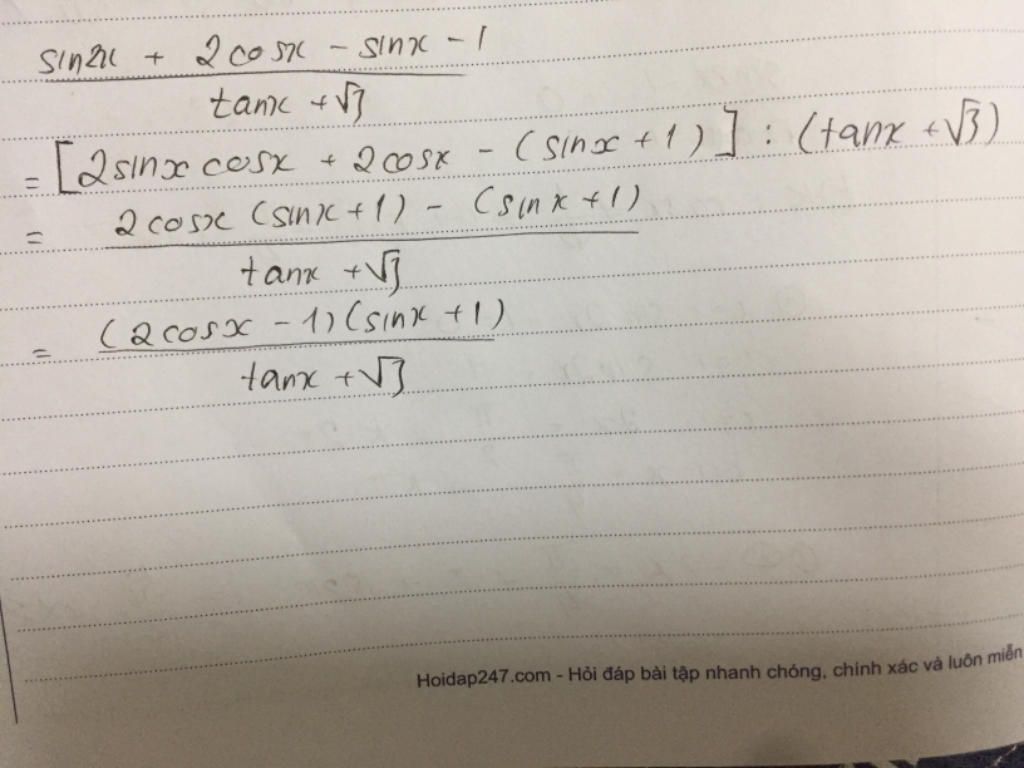 sin2x + 2cosx - sinx - 1
tanx + √3
= [2sinx cosx + 2cosx - (sinx + 1)] : (tanx + √3)
= 2cosx (sinx + 1) - (sinx + 1)
tanx + √3
= (2cosx - 1)(sinx + 1)
tanx + √3
Hoidap247.com - Hỏi đáp bài tập nhanh chóng, chính xác và luôn miễn